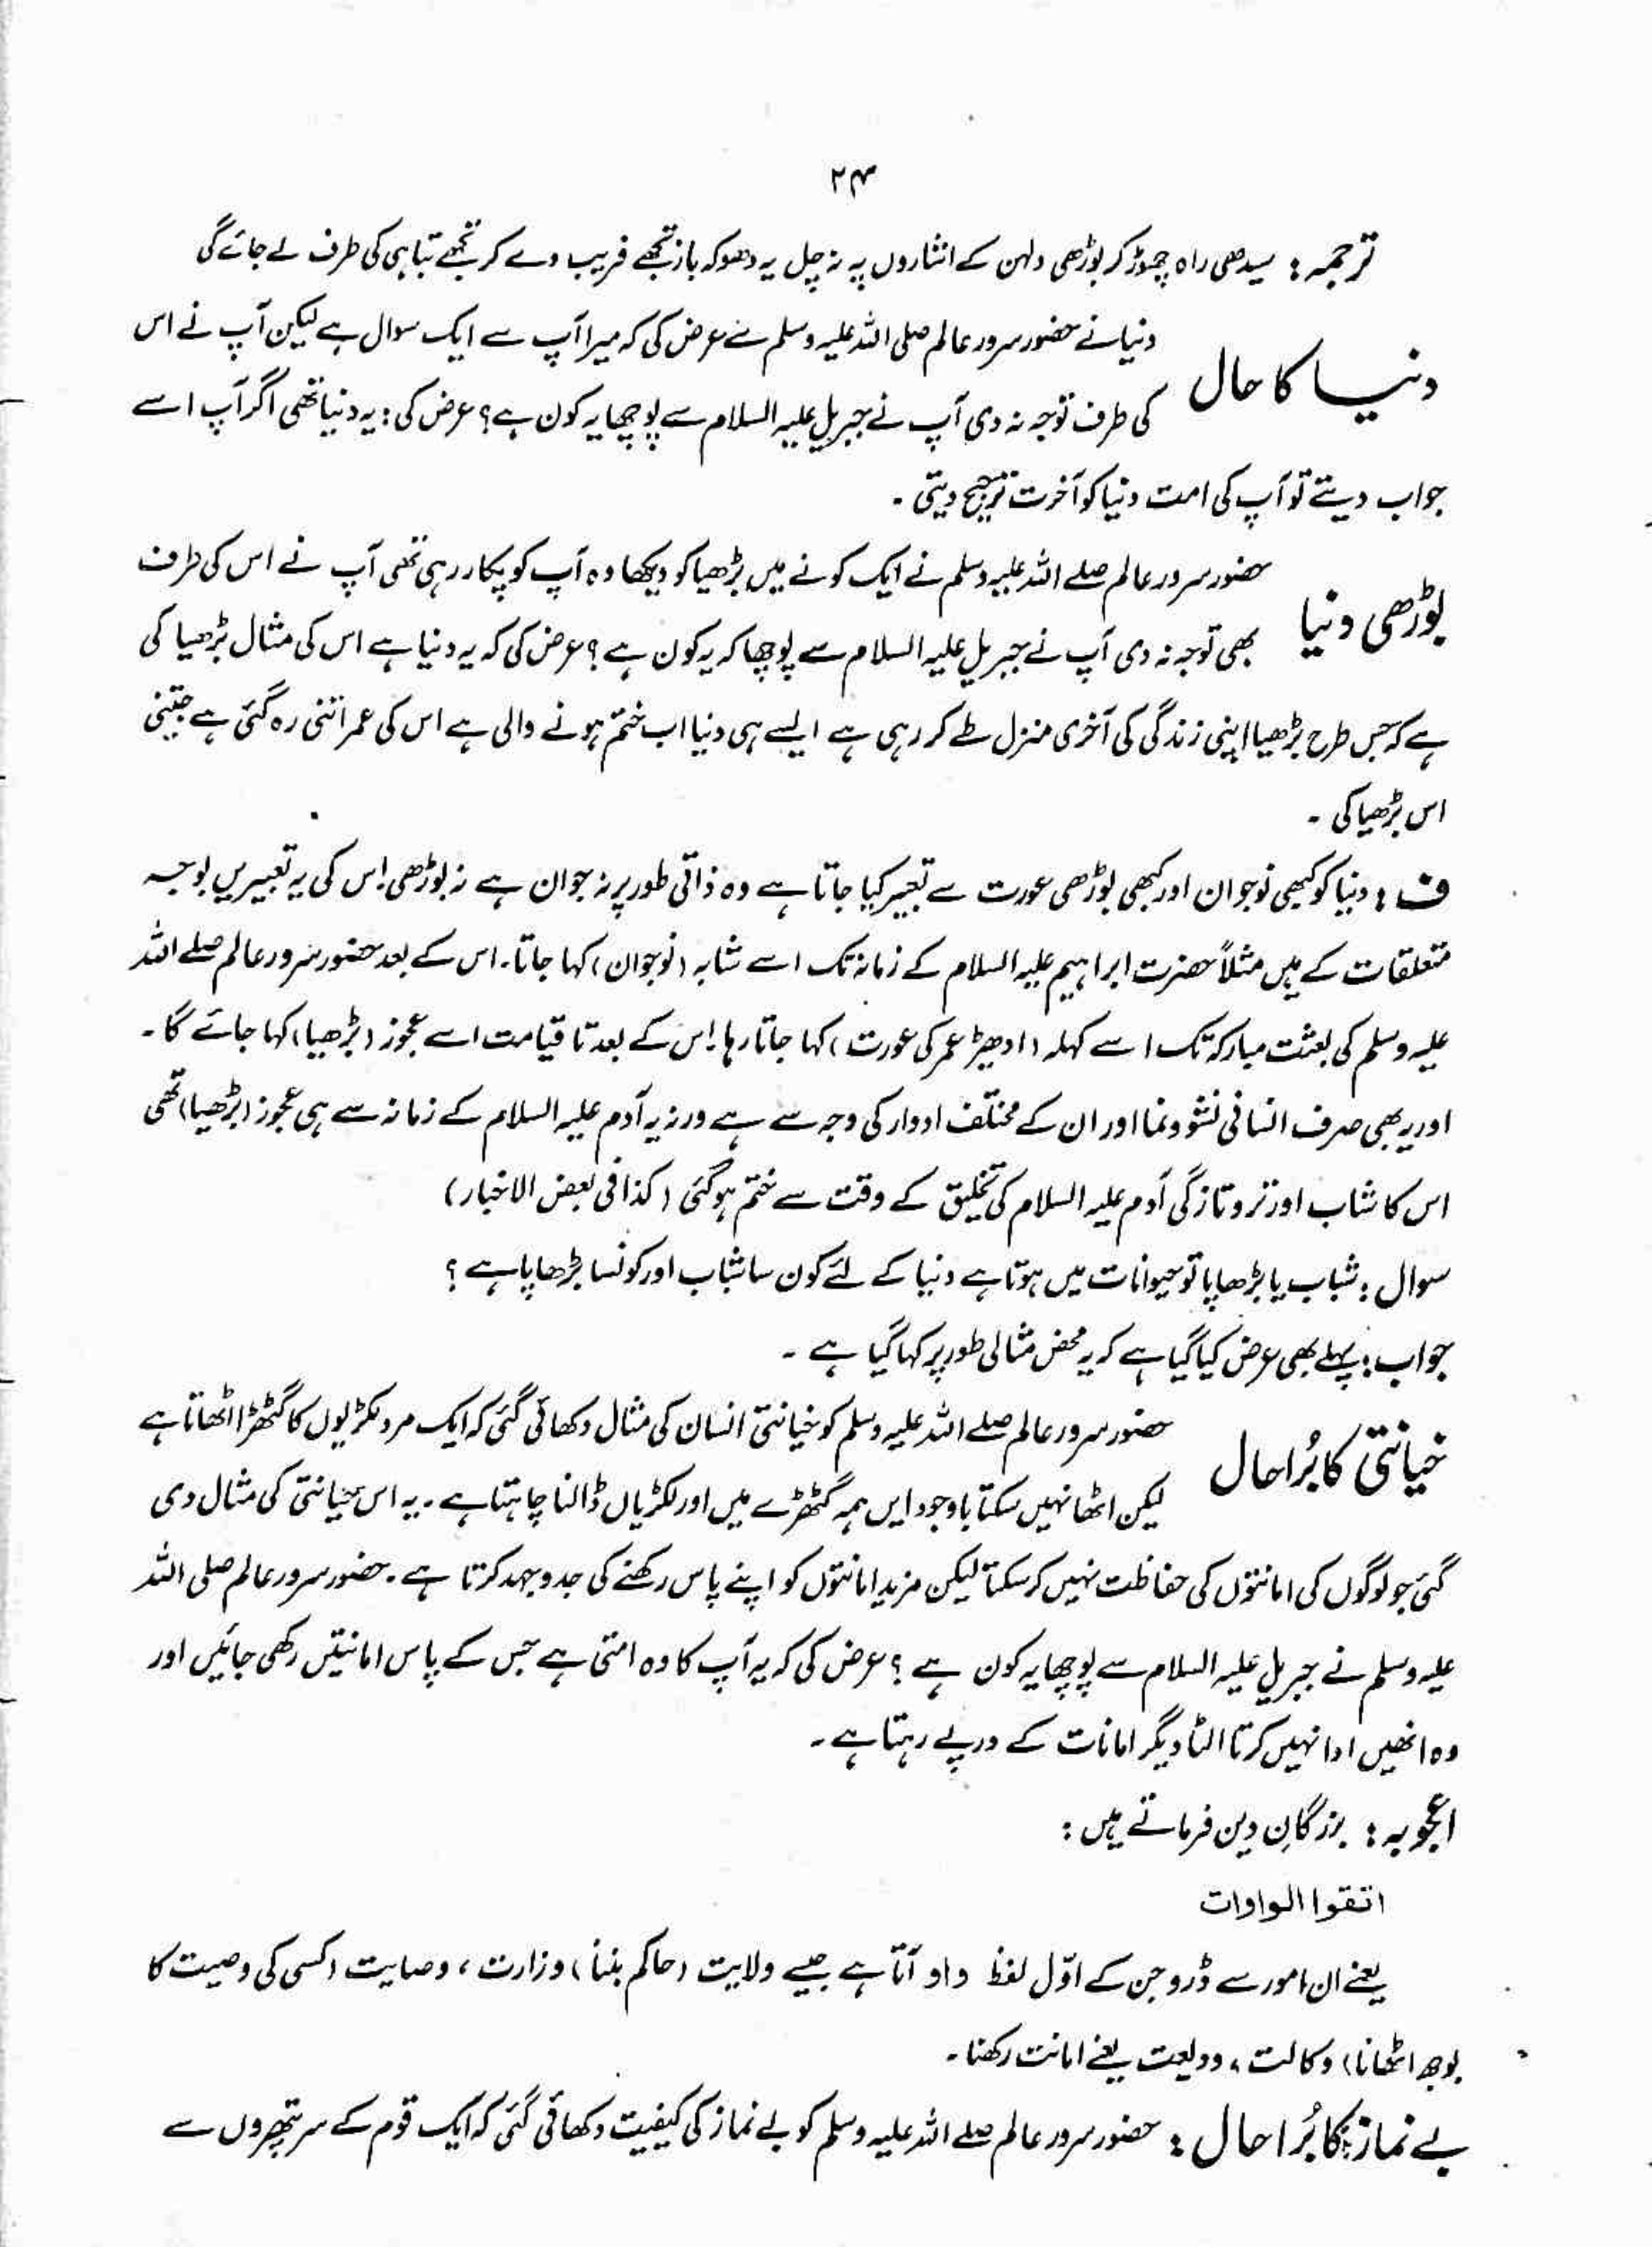 ۲۴
ترجمہ : سیدھی راہ چھوڑ کر بوڑھی دلہن کے اشاروں پہ نہ چل یہ دھوکہ باز تجھے فریب دے کر تجھے تباہی کی طرف لے جائے گی
دنیا کا حال
دنیا نے حضور سرور عالم صلی اللہ علیہ وسلم سے عرض کی کہ میرا آپ سے ایک سوال ہے لیکن آپ نے اس
کی طرف توجہ نہ دی آپ نے جبریل علیہ السلام سے پوچھا یہ کون ہے؟ عرض کی : یہ دنیا تھی اگر آپ اسے
جواب دیتے تو آپ کی امت دنیا کو آخرت ترجیح دیتی ۔
بوڑھی دنیا
حضور سرور عالم صلے اللہ علیہ وسلم نے ایک کونے میں بڑھیا کو دیکھا وہ آپ کو پکار رہی تھی آپ نے اس کی طرف
بھی توجہ نہ دی آپ نے جبریل علیہ السلام سے پوچھا کہ یہ کون ہے ؟ عرض کی کہ یہ دنیا ہے اس کی مثال بڑھیا کی
ہے کہ جس طرح بڑھیا اپنی زندگی کی آخری منزل طے کر رہی ہے ایسے ہی دنیا اب ختم ہونے والی ہے اس کی عمر اتنی رہ گئی ہے جتنی
اس بڑھیا کی ۔
ف : دنیا کو کبھی نوجوان اور کبھی بوڑھی عورت سے تعبیر کیا جاتا ہے وہ ذاتی طور پر نہ جوان ہے نہ بوڑھی اس کی یہ تعبیریں بوجہ
متعلقات کے ہیں مثلاً حضرت ابراہیم علیہ السلام کے زمانہ تک اسے شابہ (نوجوان) کہا جاتا۔ اس کے بعد حضور سرور عالم صلے اللہ
علیہ وسلم کی بعثت مبارکہ تک اسے کہلہ (ادھیڑ عمر کی عورت) کہا جاتا رہا اس کے بعد تا قیامت اسے عجوز (بڑھیا) کہا جائے گا ۔
اور یہ بھی صرف انسانی نشوونما اور ان کے مختلف ادوار کی وجہ سے ہے ورنہ یہ آدم علیہ السلام کے زمانہ سے ہی عجوز (بڑھیا) تھی
اس کا شاب اور تروتازگی آدم علیہ السلام کی تخلیق کے وقت سے ختم ہو گئی (کذا فی بعض الاخبار)
سوال : شباب یا بڑھاپا تو حیوانات میں ہوتا ہے دنیا کے لئے کون سا شباب اور کونسا بڑھاپا ہے ؟
جواب : پہلے بھی عرض کیا گیا ہے کہ یہ محض مثالی طور پر کہا گیا ہے ۔
خیانتی کا بُرا حال
حضور سرور عالم صلے اللہ علیہ وسلم کو خیانتی انسان کی مثال دکھائی گئی کہ ایک مرد لکڑیوں کا گٹھڑا اٹھاتا ہے
لیکن اٹھا نہیں سکتا باوجود ایں ہمہ گٹھڑے میں اور لکڑیاں ڈالنا چاہتا ہے ۔ یہ اس خیانتی کی مثال دی
گئی جو لوگوں کی امانتوں کی حفاظت نہیں کر سکتا لیکن مزید امانتوں کو اپنے پاس رکھنے کی جدوجہد کرتا ہے ۔ حضور سرور عالم صلی اللہ
علیہ وسلم نے جبریل علیہ السلام سے پوچھا یہ کون ہے ؟ عرض کی کہ یہ آپ کا وہ امتی ہے جس کے پاس امانیتں رکھی جائیں اور
وہ انھیں ادا نہیں کرتا الٹا دیگر امانات کے درپے رہتا ہے ۔
اعجوبہ : بزرگانِ دین فرماتے ہیں :
اتقوا الواوات
یعنے ان امور سے ڈرو جن کے اوّل لفظ واو آتا ہے جیسے ولایت (حاکم بننا) وزارت ، وصایت (کسی کی وصیت کا
بوجھ اٹھانا) وکالت ، ودیعت یعنے امانت رکھنا ۔
بے نماز کا بُرا حال : حضور سرور عالم صلے اللہ علیہ وسلم کو بے نماز کی کیفیت دکھائی گئی کہ ایک قوم کے سر پتھروں سے